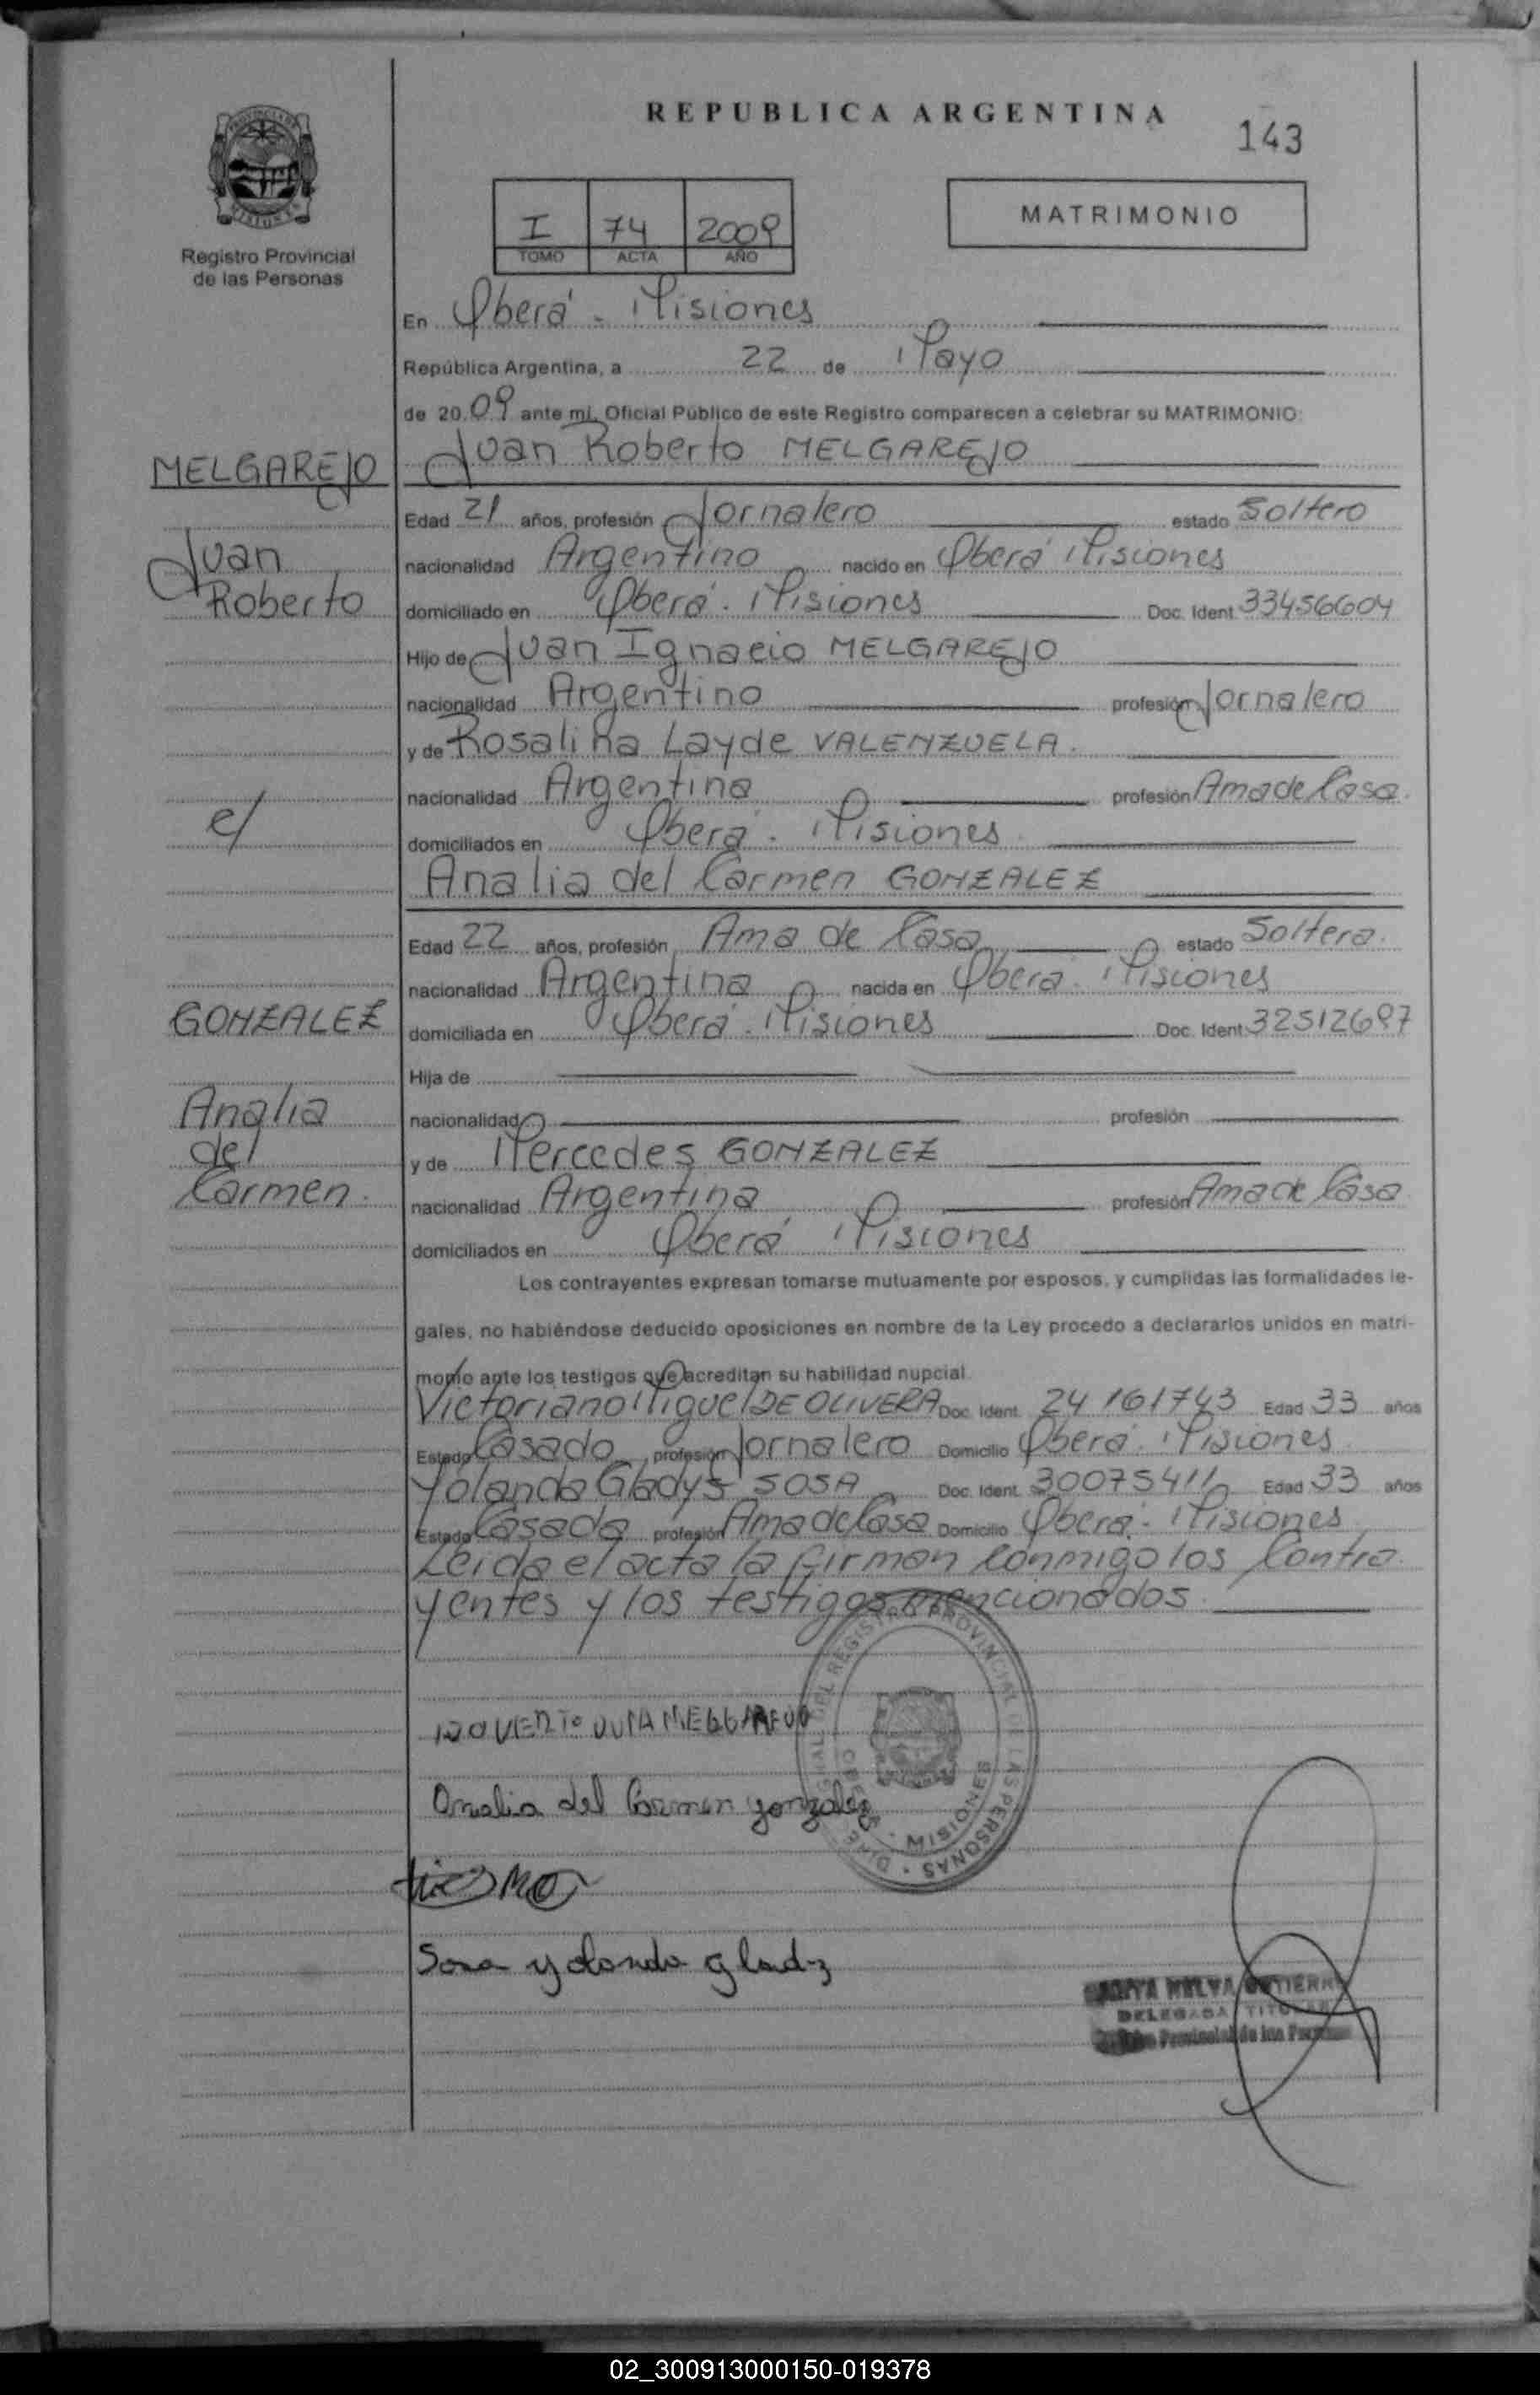 REPUBLICA ARGENTINA
143
PROVINCIA DE
MISIONES
Registro Provincial
de las Personas
I 74 2009
TOMO ACTA AÑO
MATRIMONIO
En Oberá - Misiones
República Argentina, a 22 de Mayo
de 2009 ante mí, Oficial Público de este Registro comparecen a celebrar su MATRIMONIO:
Juan Roberto MELGAREJO
MELGAREJO
Juan
Roberto
Edad 21 años, profesión Jornalero estado Soltero
nacionalidad Argentino nacido en Oberá Misiones
domiciliado en Oberá - Misiones Doc. Ident. 33456604
Hijo de Juan Ignacio MELGAREJO
nacionalidad Argentino profesión Jornalero
y de Rosalina Layde VALENZUELA.
nacionalidad Argentina profesión Ama de Casa.
c/
domiciliados en Oberá - Misiones
Analia del Carmen GONZALEZ
Edad 22 años, profesión Ama de Casa estado Soltera.
nacionalidad Argentina nacida en Oberá - Misiones
GONZALEZ
Analia
del
Carmen.
domiciliada en Oberá - Misiones Doc. Ident. 32512697
Hija de
nacionalidad profesión
y de Mercedes GONZALEZ
nacionalidad Argentina profesión Ama de Casa
domiciliados en Oberá Misiones
Los contrayentes expresan tomarse mutuamente por esposos, y cumplidas las formalidades le-
gales, no habiéndose deducido oposiciones en nombre de la Ley procedo a declararlos unidos en matri-
monio ante los testigos que acreditan su habilidad nupcial.
Victoriano Miguel DE OLIVERA Doc. Ident. 24161743 Edad 33 años
Estado Casado profesión Jornalero Domicilio Oberá - Misiones
Yolanda Gladys SOSA Doc. Ident. Edad 33 años
Estado Casada profesión Ama de Casa Domicilio Oberá - Misiones
Leida el acta la firman conmigo los Contra
yentes y los testigos mencionados.
REGISTRO PROVINCIAL DE LAS PERSONAS
MISIONES
Analia del Carmen gonzalez
Sosa yolanda gladyz
DELEGADA TITULAR
Provincial de las Personas
02_300913000150-019378